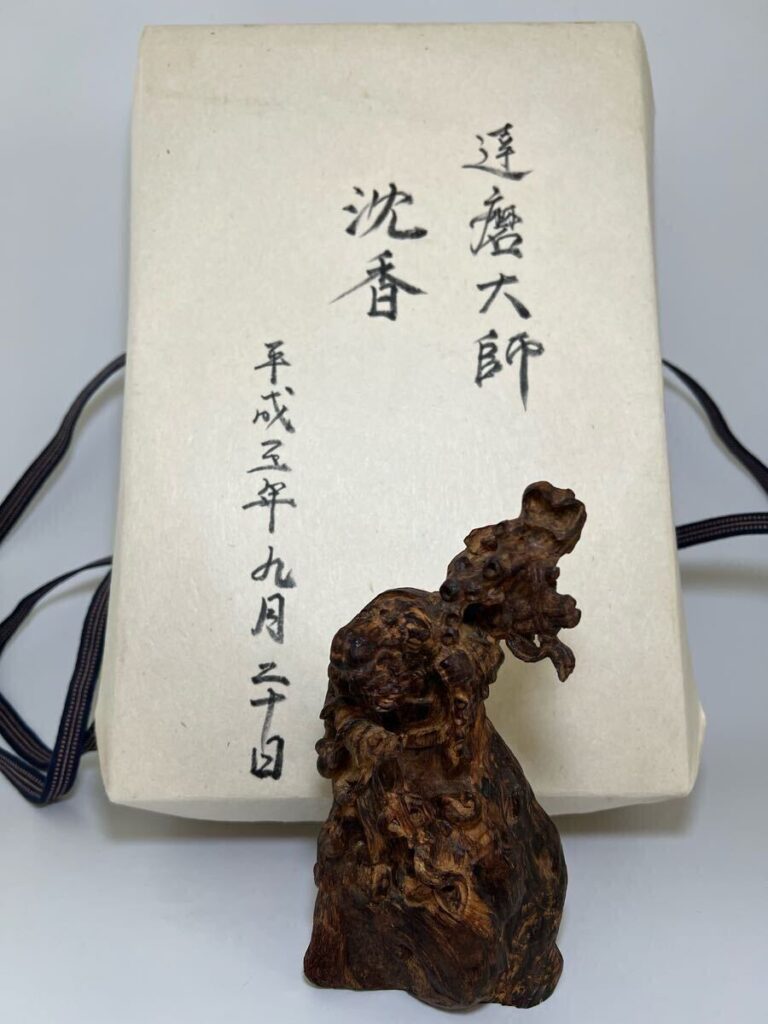 達磨大師
沈香
平成五年九月二十日